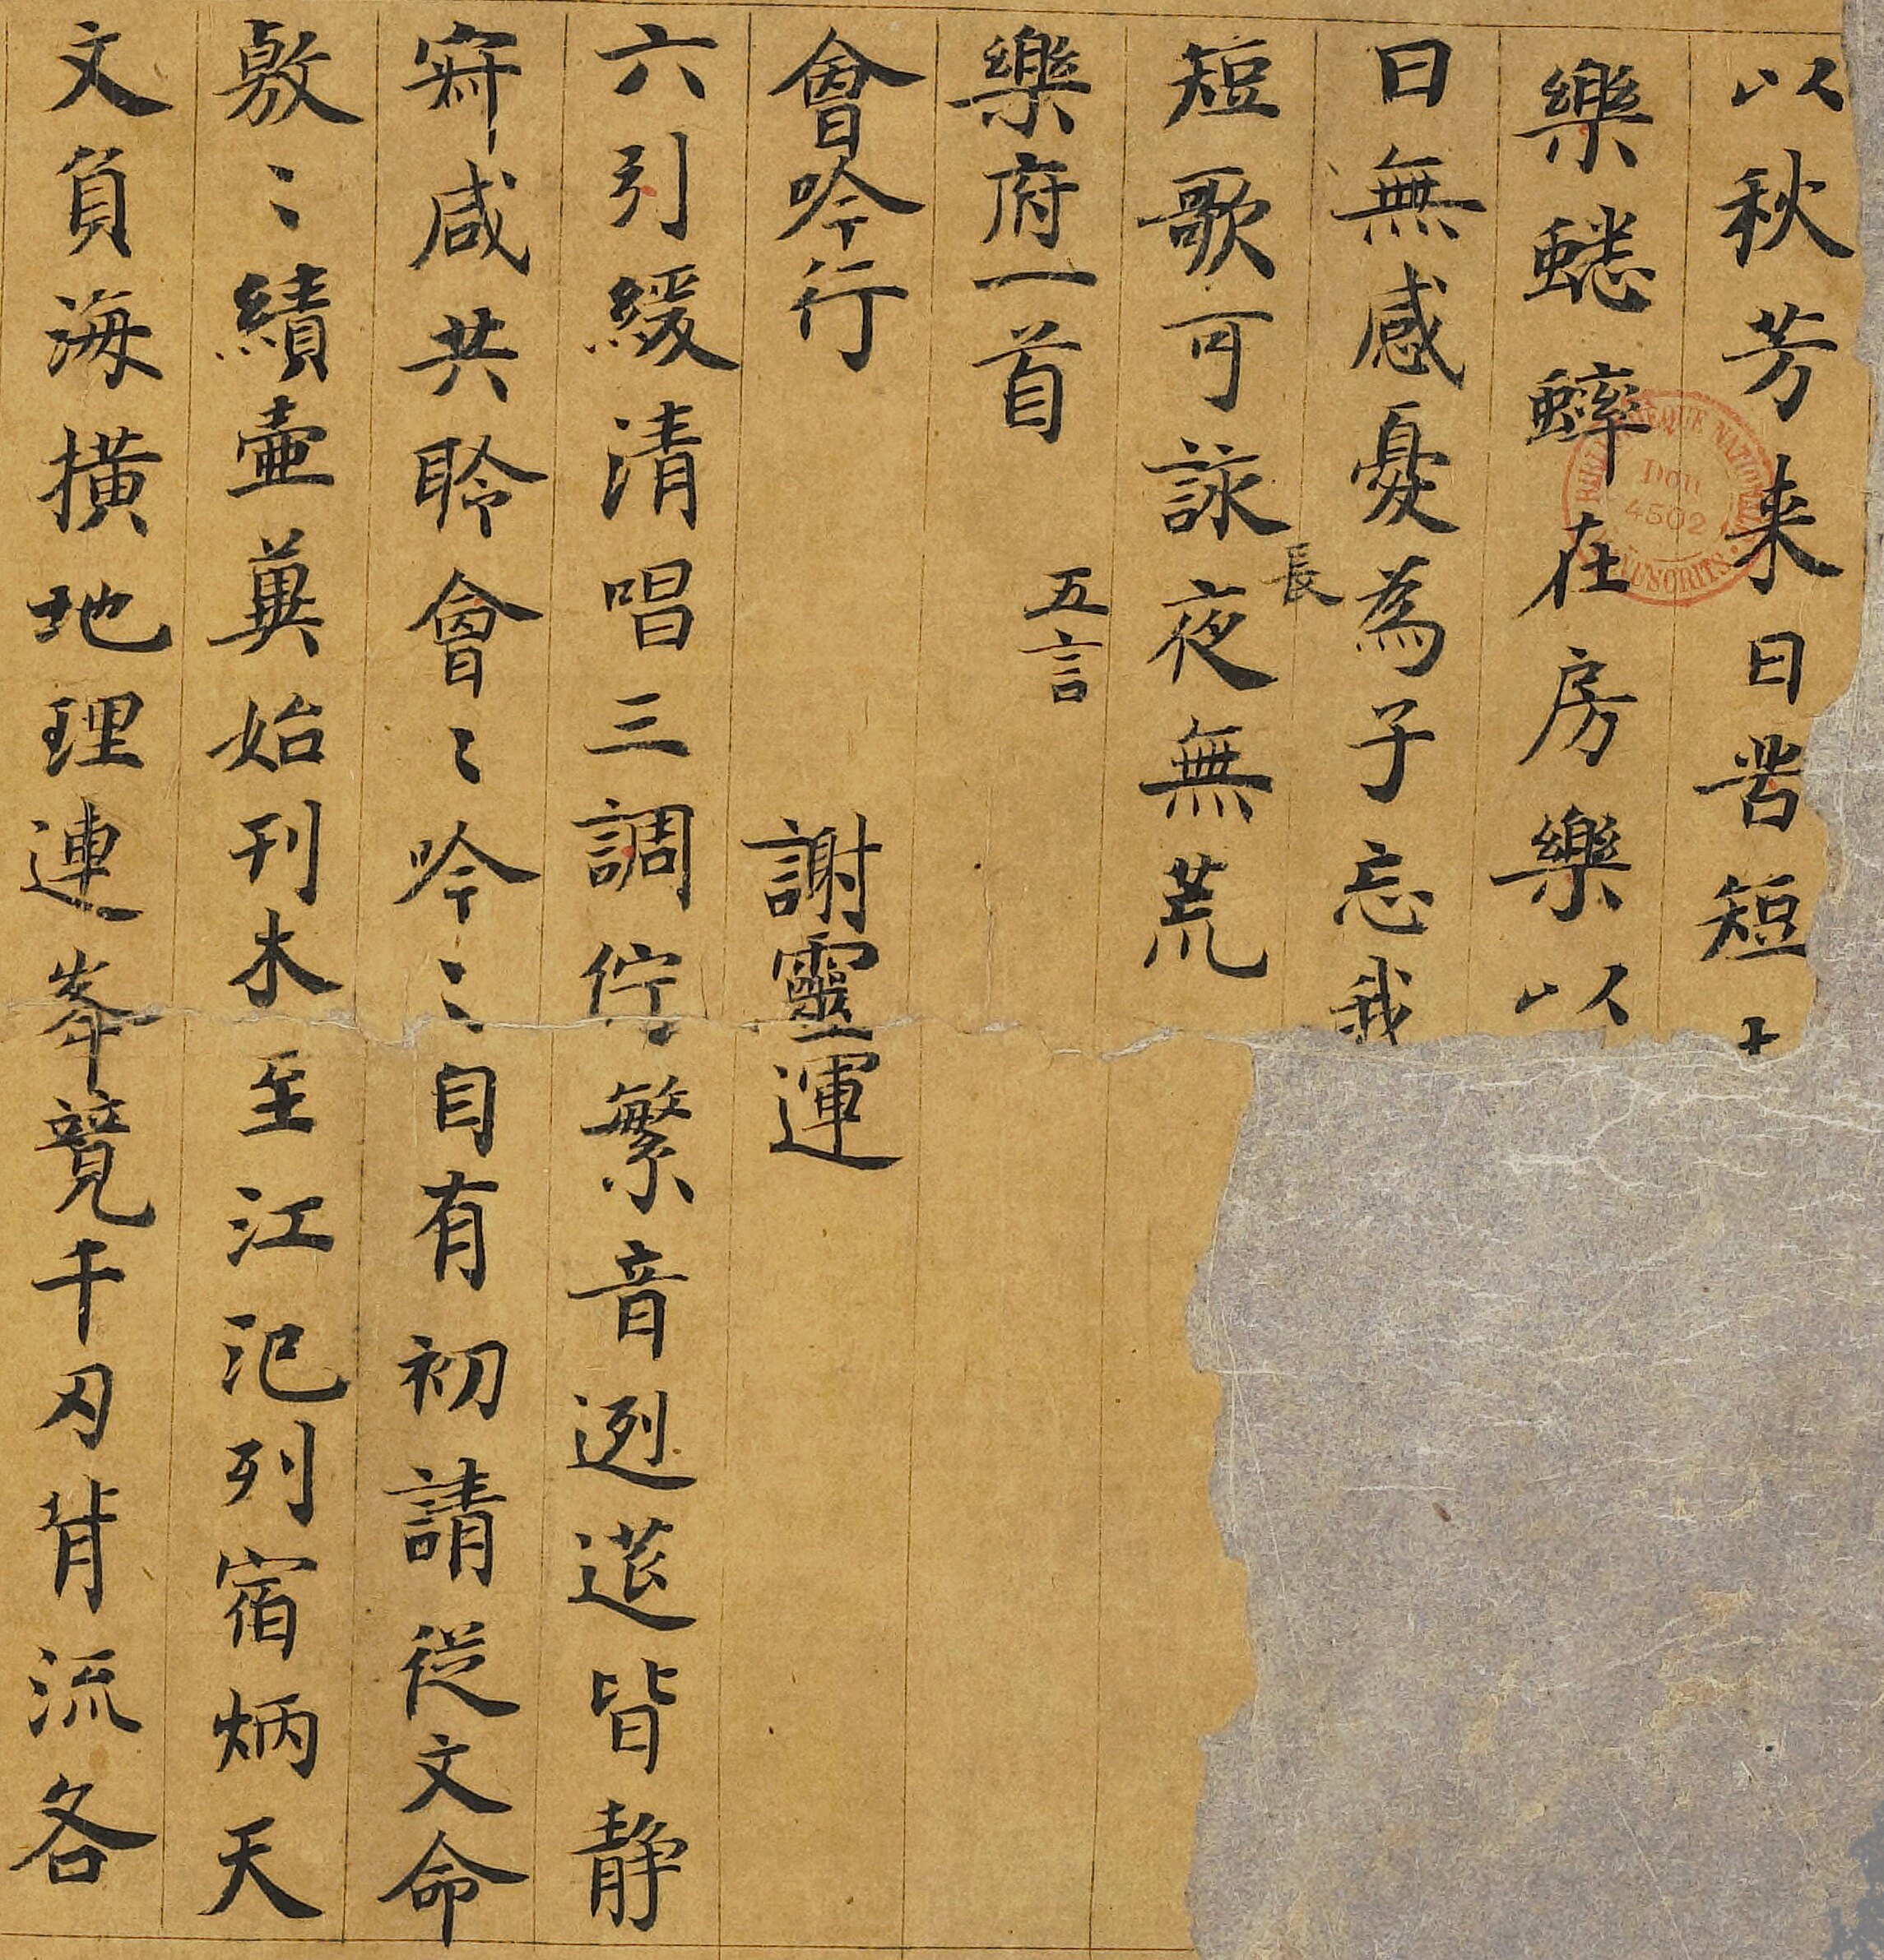 以秋芳来日苦短
樂蟋蟀在房樂以
日無感憂為子忘我
短歌可詠長夜無荒
樂府一首 五言
會吟行 謝靈運
六引緩清唱三調佇繁音迾筵皆静
寂咸共聆會〻吟〻自有初請従文命
敷〻績壺冀始刊木至江汜列宿炳天
文負海横地理連峯競千刃背流各
BIBLIOTHEQUE NATIONALE MANUSCRITS
Don
4502